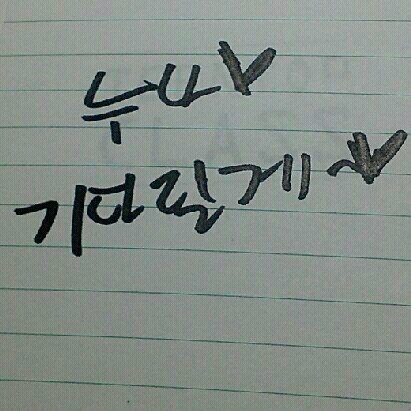 누나♥
기다릴게~♥